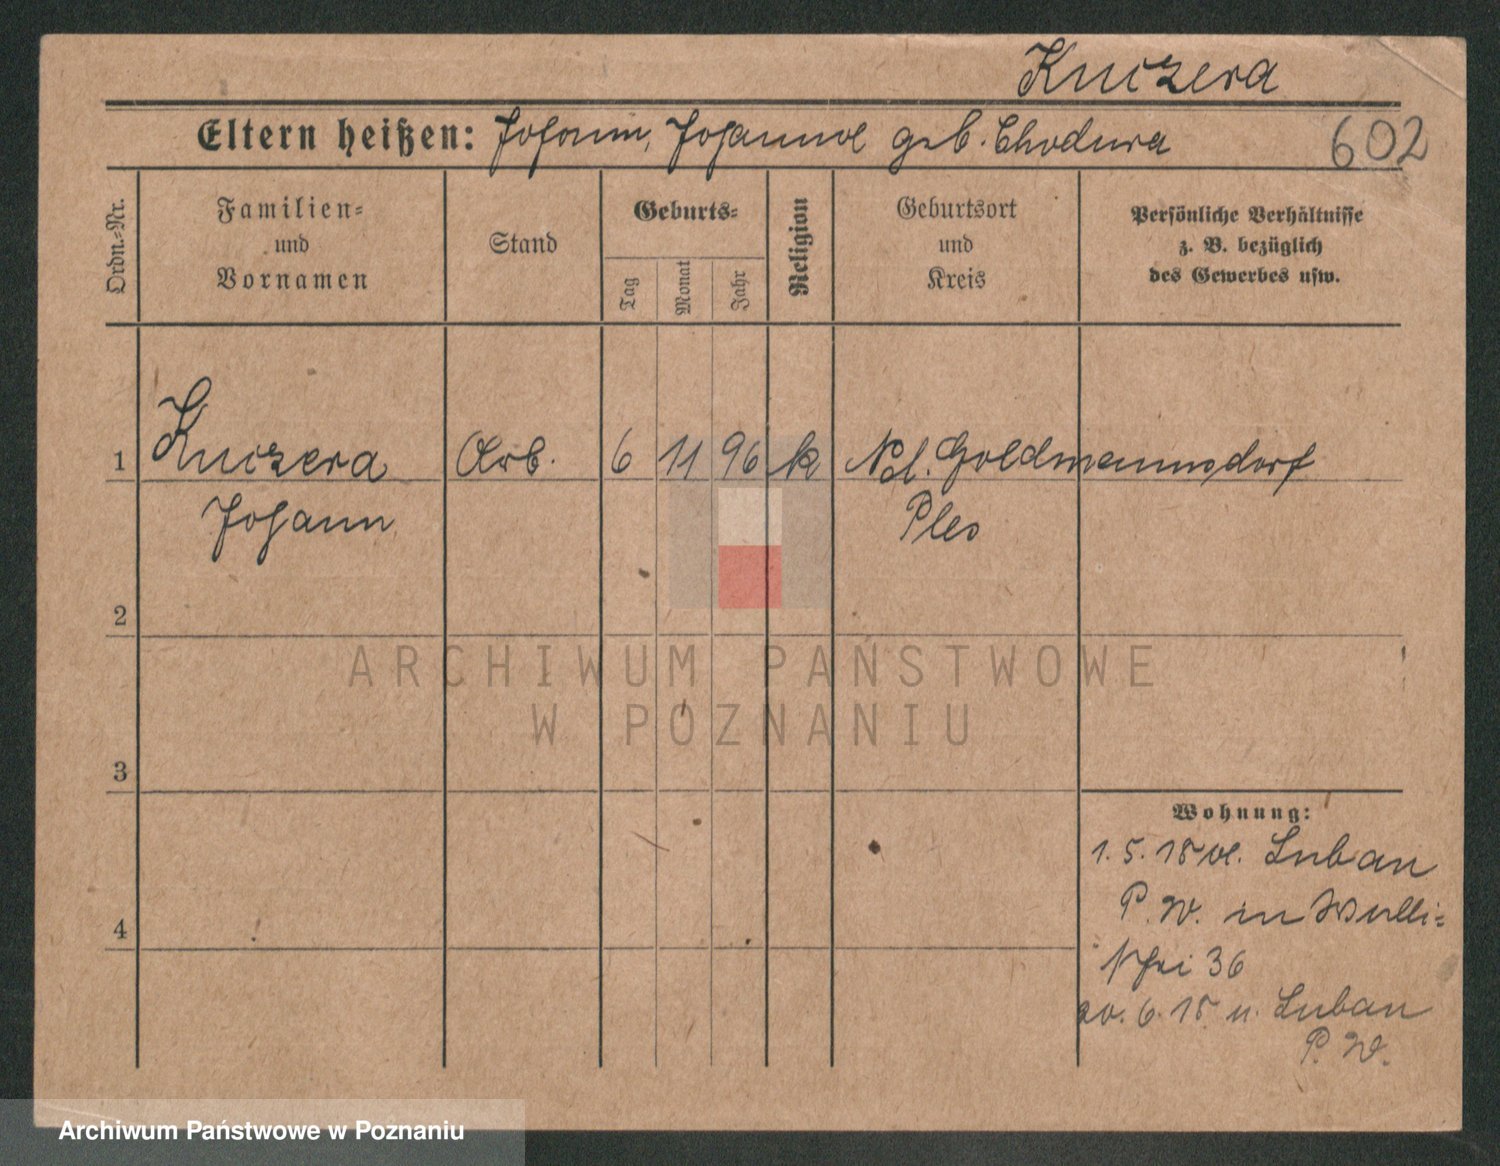 Kuczera
Eltern heißen: Johann, Johanna geb. Chodura
602
Ordn.-Nr.
Familien- und Vornamen
Stand
Geburts-
Tag
Monat
Jahr
Religion
Geburtsort und Kreis
Persönliche Verhältnisse
z. B. bezüglich
des Gewerbes usw.
1 Kuczera Arb. 6 11 96 k Ndl. Goldmannsdorf
Johann Ples
2
3
4
Wohnung:
1. 5. 18 v. Luban
P. W. in
36
20. 6. 18 n. Luban
P. W.
ARCHIWUM PAŃSTWOWE
W POZNANIU
Archiwum Państwowe w Poznaniu